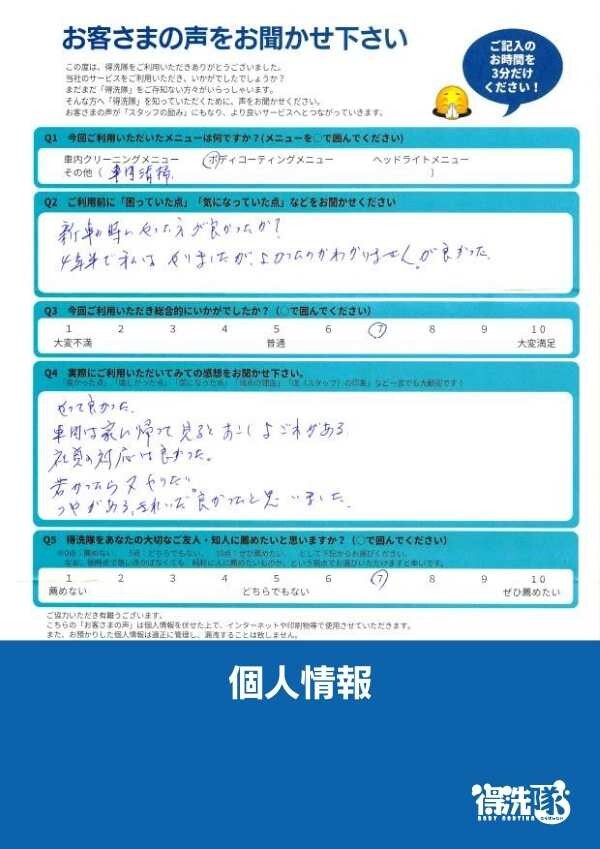 お客さまの声をお聞かせ下さい
ご記入の
お時間を
3分だけ
ください!
この度は、得洗隊をご利用いただきありがとうございました。
当社のサービスをご利用いただき、いかがでしたでしょうか?
まだまだ「得洗隊」をご存知ない方々がいらっしゃいます。
そんな方へ「得洗隊」を知っていただくために、声をお聞かせください。
お客さまの声が「スタッフの励み」にもなり、より良いサービスへとつながっていきます。
Q1 今回ご利用いただいたメニューは何ですか?(メニューを○で囲んでください)
車内クリーニングメニュー ボディコーティングメニュー ヘッドライトメニュー
その他( 車内清掃 )
Q2 ご利用前に「困っていた点」「気になっていた点」などをお聞かせください
新車の時にやった方が良かったか?
やりましたが、よかったのかわかりません。が良かった。
Q3 今回ご利用いただき総合的にいかがでしたか?(○で囲んでください)
1 2 3 4 5 6 7 8 9 10
大変不満 普通 大変満足
Q4 実際にご利用いただいてみての感想をお聞かせ下さい。
「良かった点」「嬉しかった点」「気になった点」「店(スタッフ)の印象」など一言でも大歓迎です!
やって良かった。
車内は家に帰って見るとすこしよごれがある。
社員の対応は良かった。
若かったら又やりたい
つやがある、きれいだ 良かったと思いました。
Q5 得洗隊をあなたの大切なご友人・知人に薦めたいと思いますか?(○で囲んでください)
※0点:薦めない 5点:どちらでもない 10点:ぜひ薦めたい として下記からお選びください。
1 2 3 4 5 6 7 8 9 10
薦めない どちらでもない ぜひ薦めたい
ご協力いただき有難うございます。
こちらの「お客さまの声」は個人情報を伏せた上で、インターネットや印刷物等で使用させていただきます。
また、お預かりした個人情報は適正に管理し、漏洩することは致しません。
個人情報
得洗隊